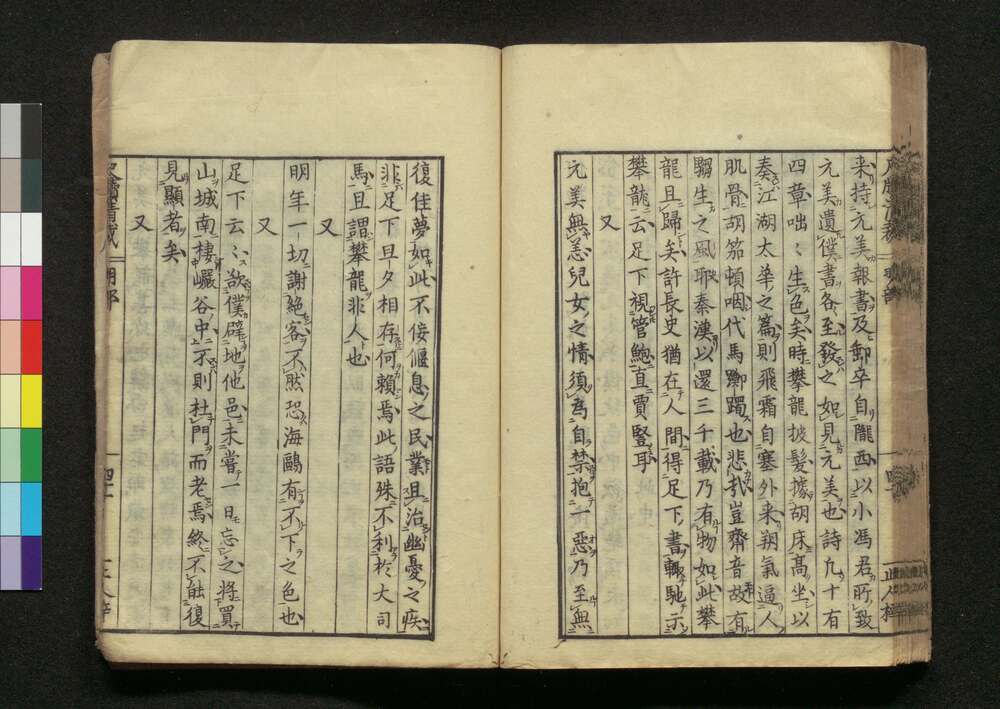 来持元美報書及郵卒自隴西以小馮君所致
元美遺僕書各至發之如見元美也詩凡十有
四章咄々生色矣時攀龍披髮據胡床高坐以
奏江湖太華之篇則飛霜自塞外来朔氣逼人
肌骨胡笳頓咽代馬躑躅也悲哉豈齊音故有
騶生之風耶秦漢以還三千載乃有物如此攀
龍且歸矣許長史猶在人間得足下書輙馳示
攀龍云足下視管鮑直賈豎耳
元美無恙兒女之情須爲自禁抱一惡乃至無
復佳夢如此不佞偃息之民業且治幽憂之疾
非足下旦夕相存何頼焉此語殊不利於大司
馬且謂攀龍非人也
又
明年一切謝絶客不然恐海鷗有不下之色也
又
足下云々欲僕辟地他邑未嘗一日忘之将買
山城南棲巖谷中不則杜門而老焉終不能復
見顯者矣
又